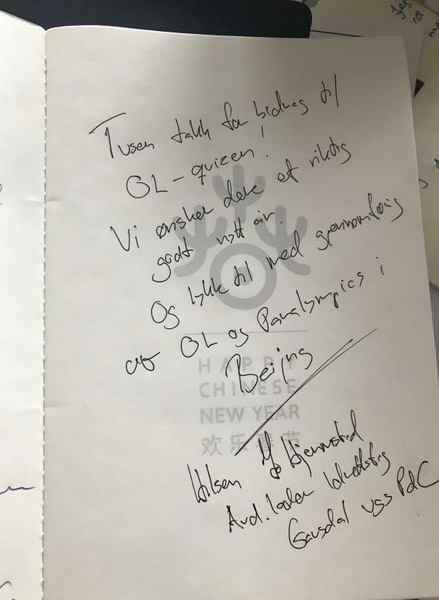 Tusen takk for bidrag til
OL-quizen!
Vi ønsker dere et riktig
godt nytt år.
Og lykke til med gjennomføring
av OL og Paralympics i
Beijing
HAPPY
CHINESE
NEW YEAR
欢乐春节
Hilsen
Avd. leder
Gausdal vgs